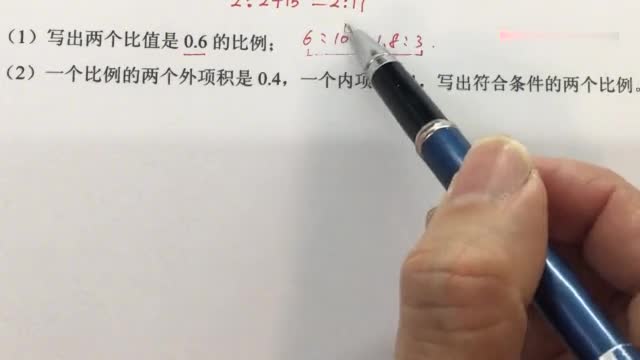 2:2+15 = 2:17
(1)写出两个比值是 0.6 的比例; 6:10 1.8:3.
(2)一个比例的两个外项积是 0.4,一个内项,写出符合条件的两个比例。